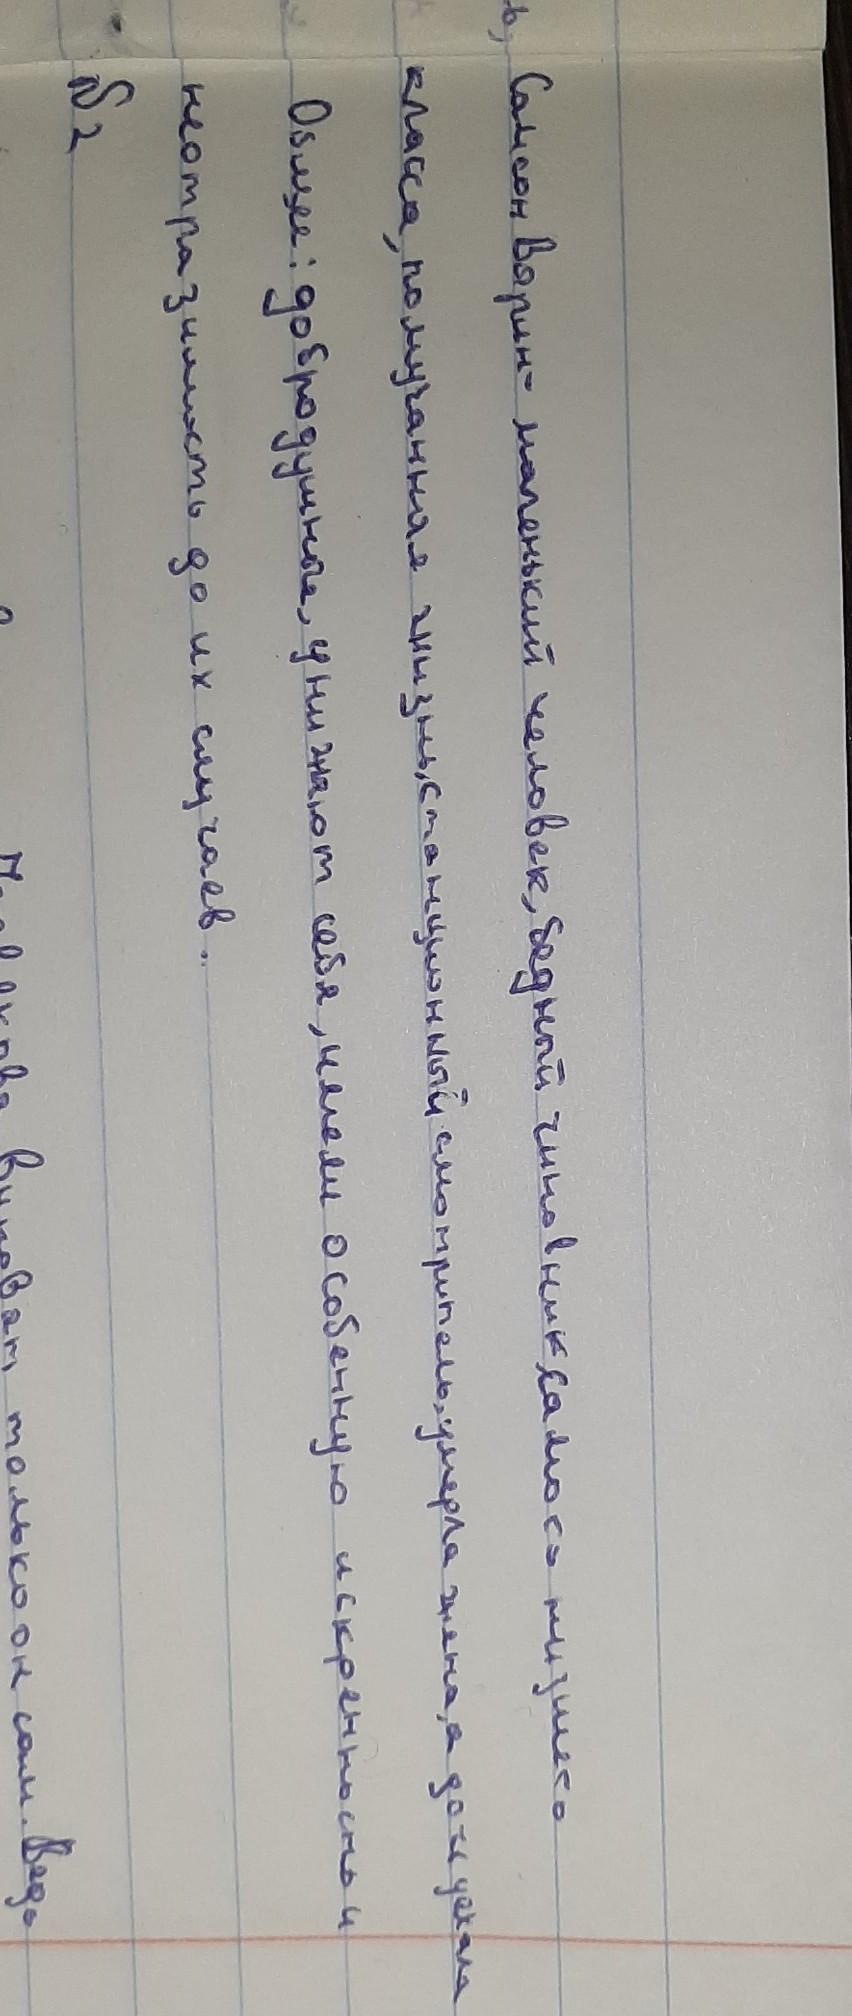 ь,
Самсон Варин - маленький человек, бедный чиновник самого низшего
класса, помученная жизнь, станционный смотритель, умерла жена, а дочь уехала
Общее: добродушные, унижают себя, имели особенную искренность и
неотразимость до их случаев.
№2
виноват только он сам. Ведь